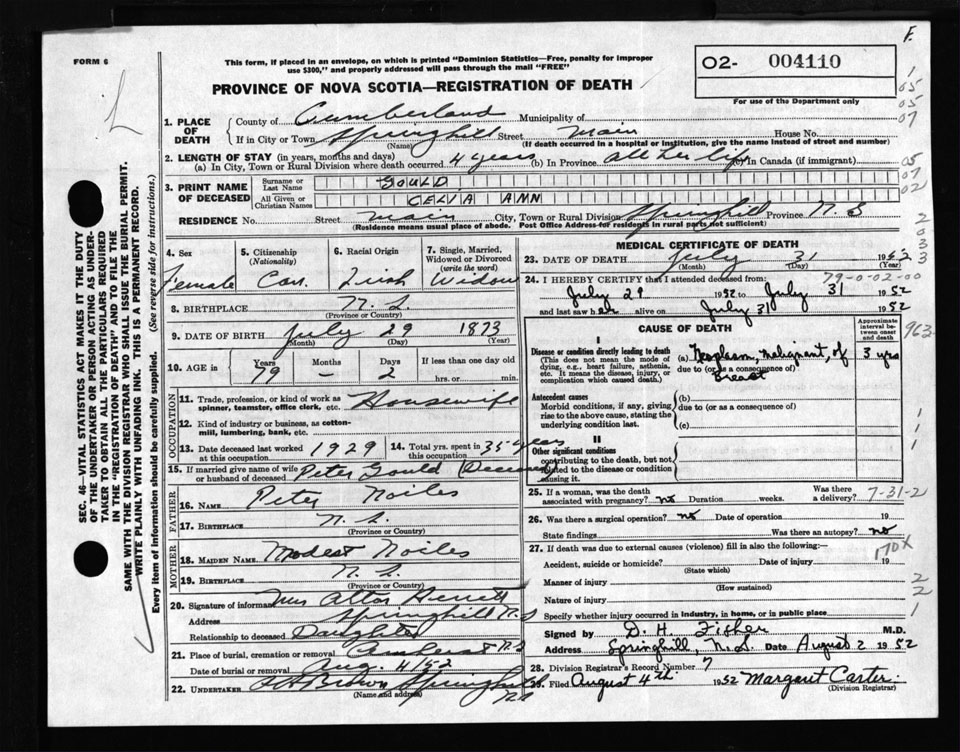 F.
FORM 6
This form, if placed in an envelope, on which is printed "Dominion Statistics—Free, penalty for improper
use $300," and properly addressed will pass through the mail "FREE"
O2- 004110
For use of the Department only
PROVINCE OF NOVA SCOTIA—REGISTRATION OF DEATH
1. PLACE OF DEATH
County of Cumberland Municipality of
If in City or Town Springhill Street Main House No.
(Name) (If death occurred in a hospital or institution, give the name instead of street and number)
2. LENGTH OF STAY (in years, months and days)
(a) In City, Town or Rural Division where death occurred 4 years (b) In Province all her life (c) In Canada (if immigrant)
3. PRINT NAME OF DECEASED
Surname or Last Name GOULD
All Given or Christian Names CELIA ANN
RESIDENCE No. Street Main City, Town or Rural Division Springhill Province N. S
(Residence means usual place of abode. Post Office Address for residents in rural parts not sufficient)
4. Sex Female
5. Citizenship (Nationality) Can.
6. Racial Origin Irish
7. Single, Married, Widowed or Divorced (write the word) Widow
8. BIRTHPLACE N. S.
(Province or Country)
9. DATE OF BIRTH July 29 1873
(Month) (Day) (Year)
10. AGE in Years 79 Months - Days 2 If less than one day old hrs. or min.
OCCUPATION
11. Trade, profession, or kind of work as spinner, teamster, office clerk, etc. Housewife
12. Kind of industry or business, as cotton-mill, lumbering, bank, etc.
13. Date deceased last worked at this occupation 1929
14. Total yrs. spent in this occupation 35 years
15. If married give name of wife or husband of deceased Peter Gould (Deceased)
FATHER
16. NAME Peter Noiles
17. BIRTHPLACE N. S.
(Province or Country)
MOTHER
18. MAIDEN NAME Modest Noiles
19. BIRTHPLACE N. S.
(Province or Country)
20. Signature of informant Mrs Alton
Address Springhill N.S
Relationship to deceased Daughter
21. Place of burial, cremation or removal Amherst N S
Date of burial or removal Aug. 4/52
22. UNDERTAKER Brown Springhill N S
(Name and address)
MEDICAL CERTIFICATE OF DEATH
23. DATE OF DEATH July 31 1952
(Month) (Day) (Year)
79-0-02-00
24. I HEREBY CERTIFY that I attended deceased from:
July 29 1952 to July 31 1952
and last saw her alive on July 31 1952
CAUSE OF DEATH
Approximate interval between onset and death
I
Disease or condition directly leading to death
(This does not mean the mode of dying, e.g., heart failure, asthenia, etc. It means the disease, injury, or complication which caused death.)
(a) Neoplasm, malignant, of Breast 3 yrs
due to (or as a consequence of)
Antecedent causes
Morbid conditions, if any, giving rise to the above cause, stating the underlying condition last.
(b)
due to (or as a consequence of)
(c)
II
Other significant conditions
contributing to the death, but not related to the disease or condition causing it.
25. If a woman, was the death associated with pregnancy? no Duration weeks. Was there a delivery? 7-31-2
26. Was there a surgical operation? no Date of operation 19
State findings Was there an autopsy? no
170X
27. If death was due to external causes (violence) fill in also the following:—
Accident, suicide or homicide? Date of injury 19
(State which)
Manner of injury
(How sustained)
Nature of injury
Specify whether injury occurred in industry, in home, or in public place
Signed by D. H. Fisher M.D.
Address Springhill, N.S. Date August 2 1952
28. Division Registrar's Record Number 7
29. Filed August 4th 1952 Margaret Carter.
(Division Registrar)
SEC. 46—VITAL STATISTICS ACT MAKES IT THE DUTY
OF THE UNDERTAKER OR PERSON ACTING AS UNDER-
TAKER TO OBTAIN ALL THE PARTICULARS REQUIRED
IN THE "REGISTRATION OF DEATH" AND TO FILE THE
SAME WITH THE DIVISION REGISTRAR WHO SHALL ISSUE THE BURIAL PERMIT.
WRITE PLAINLY WITH UNFADING INK. THIS IS A PERMANENT RECORD.
Every item of information should be carefully supplied. (See reverse side for instructions.)
1
05
05
07
05
07
02
2
0
3
3
963
1
1
1
2
2
1